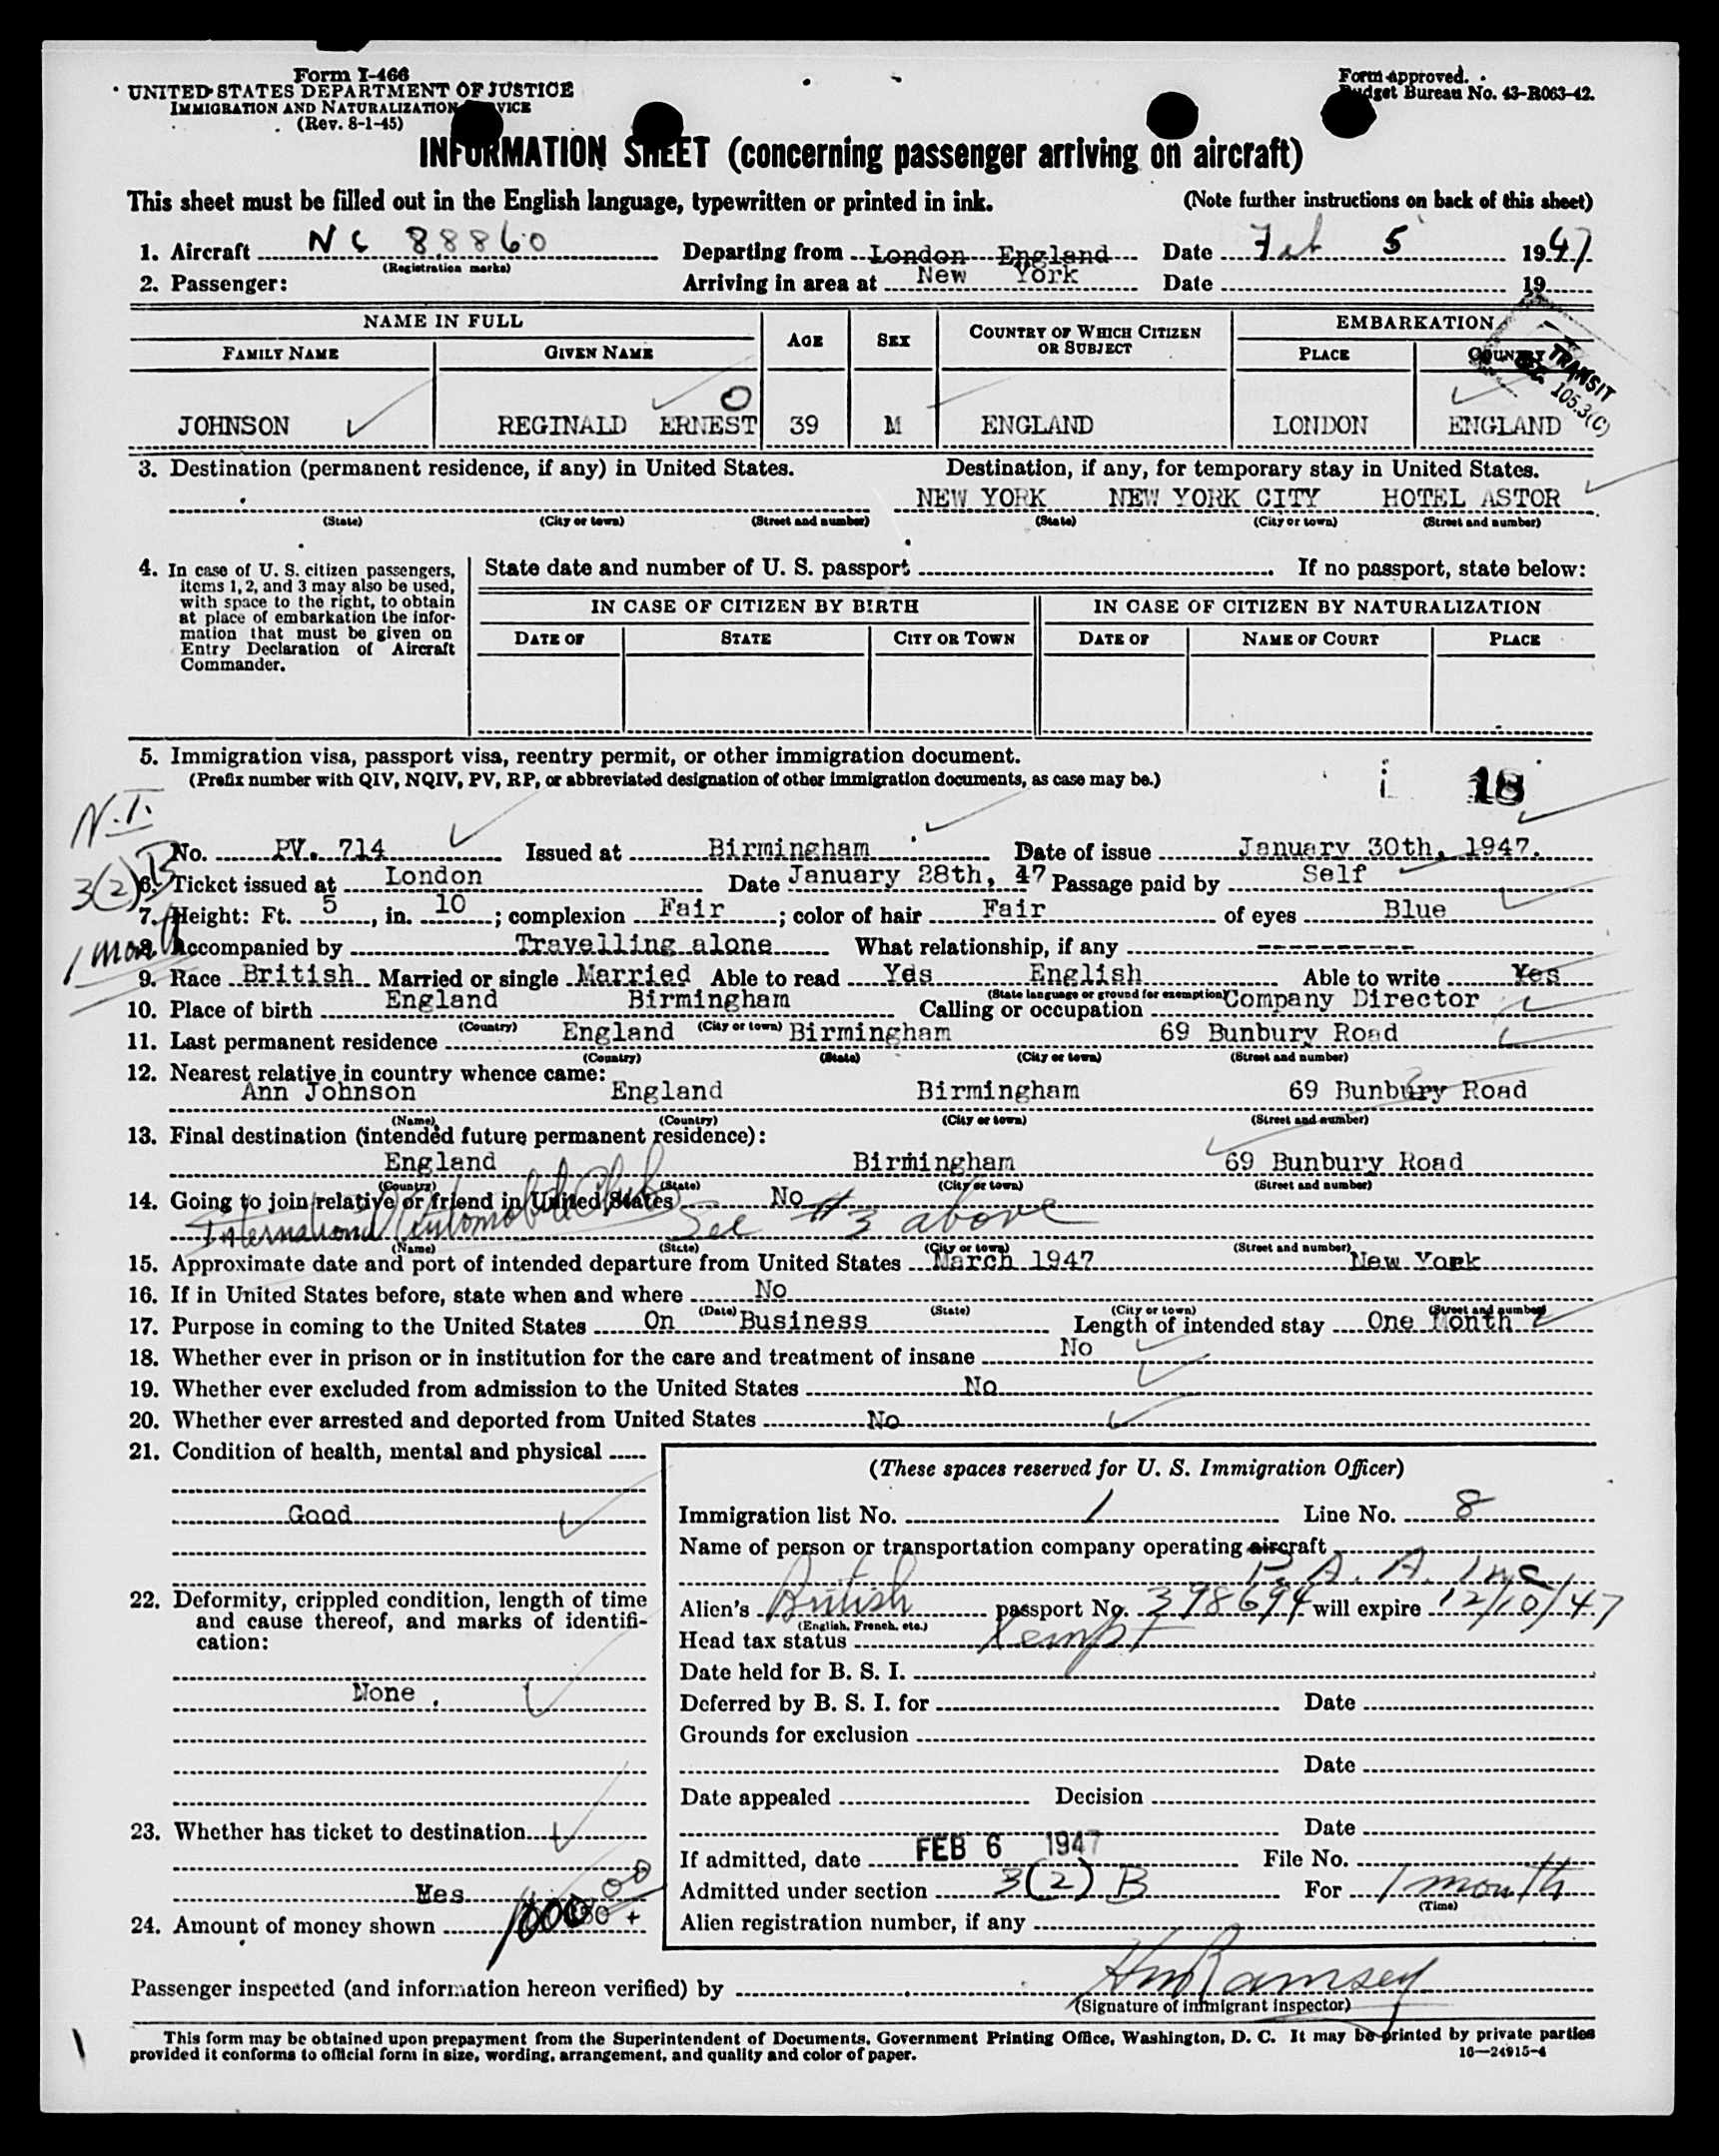 Form I-466
UNITED STATES DEPARTMENT OF JUSTICE
IMMIGRATION AND NATURALIZATION SERVICE
(Rev. 8-1-45)
Form approved.
Budget Bureau No. 43-R063-42.
INFORMATION SHEET (concerning passenger arriving on aircraft)
This sheet must be filled out in the English language, typewritten or printed in ink. (Note further instructions on back of this sheet)
1. Aircraft NC 88860 Departing from London England Date Feb 5 1947
(Registration marks)
2. Passenger: Arriving in area at New York Date 19
NAME IN FULL AGE SEX COUNTRY OF WHICH CITIZEN OR SUBJECT EMBARKATION
FAMILY NAME GIVEN NAME PLACE COUNTRY
TRANSIT
105.3(C)
JOHNSON REGINALD ERNEST 39 M ENGLAND LONDON ENGLAND
3. Destination (permanent residence, if any) in United States. Destination, if any, for temporary stay in United States.
NEW YORK NEW YORK CITY HOTEL ASTOR
(State) (City or town) (Street and number) (State) (City or town) (Street and number)
4. In case of U. S. citizen passengers, items 1, 2, and 3 may also be used, with space to the right, to obtain at place of embarkation the information that must be given on Entry Declaration of Aircraft Commander.
State date and number of U. S. passport If no passport, state below:
IN CASE OF CITIZEN BY BIRTH IN CASE OF CITIZEN BY NATURALIZATION
DATE OF STATE CITY OR TOWN DATE OF NAME OF COURT PLACE
5. Immigration visa, passport visa, reentry permit, or other immigration document.
(Prefix number with QIV, NQIV, PV, RP, or abbreviated designation of other immigration documents, as case may be.)
18
N.I.
3(2)B
1 month
No. PV. 714 Issued at Birmingham Date of issue January 30th, 1947.
6. Ticket issued at London Date January 28th, 47 Passage paid by Self
7. Height: Ft. 5, in. 10; complexion Fair; color of hair Fair of eyes Blue
8. Accompanied by Travelling alone What relationship, if any ----------
9. Race British Married or single Married Able to read Yes English Able to write Yes
(State language or ground for exemption)
10. Place of birth England Birmingham Calling or occupation Company Director
(Country) (City or town)
11. Last permanent residence England Birmingham 69 Bunbury Road
(Country) (State) (City or town) (Street and number)
12. Nearest relative in country whence came:
Ann Johnson England Birmingham 69 Bunbury Road
(Name) (Country) (City or town) (Street and number)
13. Final destination (intended future permanent residence):
England Birmingham 69 Bunbury Road
(Country) (State) (City or town) (Street and number)
14. Going to join relative or friend in United States No
International Automobile Club See #3 above
(Name) (State) (City or town) (Street and number)
15. Approximate date and port of intended departure from United States March 1947 New York
16. If in United States before, state when and where No
(Date) (State) (City or town) (Street and number)
17. Purpose in coming to the United States On Business Length of intended stay One Month
18. Whether ever in prison or in institution for the care and treatment of insane No
19. Whether ever excluded from admission to the United States No
20. Whether ever arrested and deported from United States No
21. Condition of health, mental and physical
Good
22. Deformity, crippled condition, length of time and cause thereof, and marks of identification:
None.
23. Whether has ticket to destination
Yes
24. Amount of money shown
(These spaces reserved for U. S. Immigration Officer)
Immigration list No. 1 Line No. 8
Name of person or transportation company operating aircraft
P. A. A. Inc
Alien's British passport No. 398694 will expire 12/10/47
(English, French, etc.)
Head tax status Xempt
Date held for B. S. I.
Deferred by B. S. I. for Date
Grounds for exclusion
Date
Date appealed Decision
Date
If admitted, date FEB 6 1947 File No.
Admitted under section 3(2) B For 1 month
(Time)
Alien registration number, if any
Passenger inspected (and information hereon verified) by HM Ramsey
(Signature of immigrant inspector)
This form may be obtained upon prepayment from the Superintendent of Documents, Government Printing Office, Washington, D. C. It may be printed by private parties
provided it conforms to official form in size, wording, arrangement, and quality and color of paper. 16—24915-4